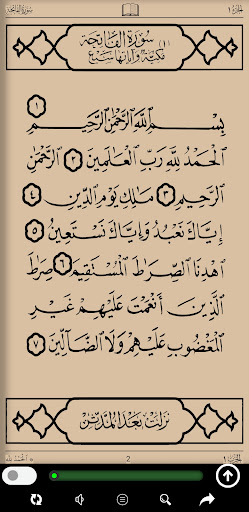 سورة الفاتحة الجزء ١
سُورَةُ الفَاتِحَة
مكيّة وآياتها سَبْع
١
بِسْمِ ٱللَّهِ ٱلرَّحْمَٰنِ ٱلرَّحِيمِ
ٱلْحَمْدُ لِلَّهِ رَبِّ ٱلْعَٰلَمِينَ ٢ ٱلرَّحْمَٰنِ
ٱلرَّحِيمِ ٣ مَٰلِكِ يَوْمِ ٱلدِّينِ ٤
إِيَّاكَ نَعْبُدُ وَإِيَّاكَ نَسْتَعِينُ ٥
ٱهْدِنَا ٱلصِّرَٰطَ ٱلْمُسْتَقِيمَ ٦ صِرَٰطَ
ٱلَّذِينَ أَنْعَمْتَ عَلَيْهِمْ غَيْرِ
ٱلْمَغْضُوبِ عَلَيْهِمْ وَلَا ٱلضَّآلِّينَ ٧
نزلت بَعْدَ المدّثر
الحزب ١ 2 الحمد لله